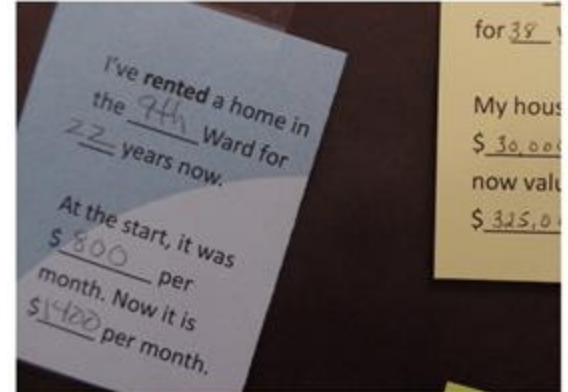 I've rented a home in
the 9th Ward for
22 years now.
At the start, it was
$ 800 per
month. Now it is
$1400 per month.
for 38
My hous
$ 30,000
now valu
$ 325,0